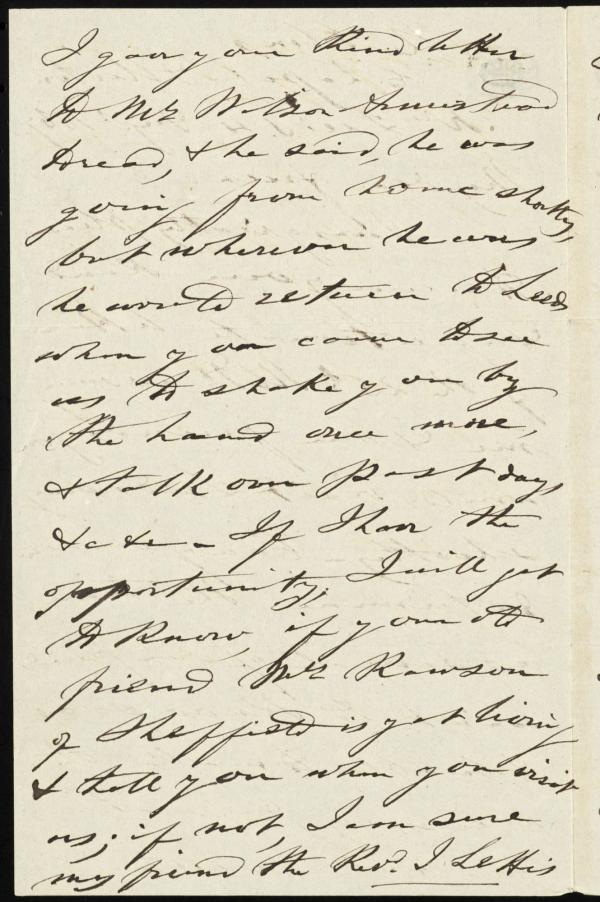 I gave your Kind letter
to Mr Wilson Armistead
to read, & he said, he was
going from home shortly,
but wherever he was
he would return to Leeds
when you come to see
us to shake you by
the hand once more,
& talk over past days
&c &c - If I have the
opportunity, I will get
to Know, if your old
friend Mr Rawson
of Sheffield is yet living
& tell you when you visit
us; if not, I am sure
my friend the Revd. J